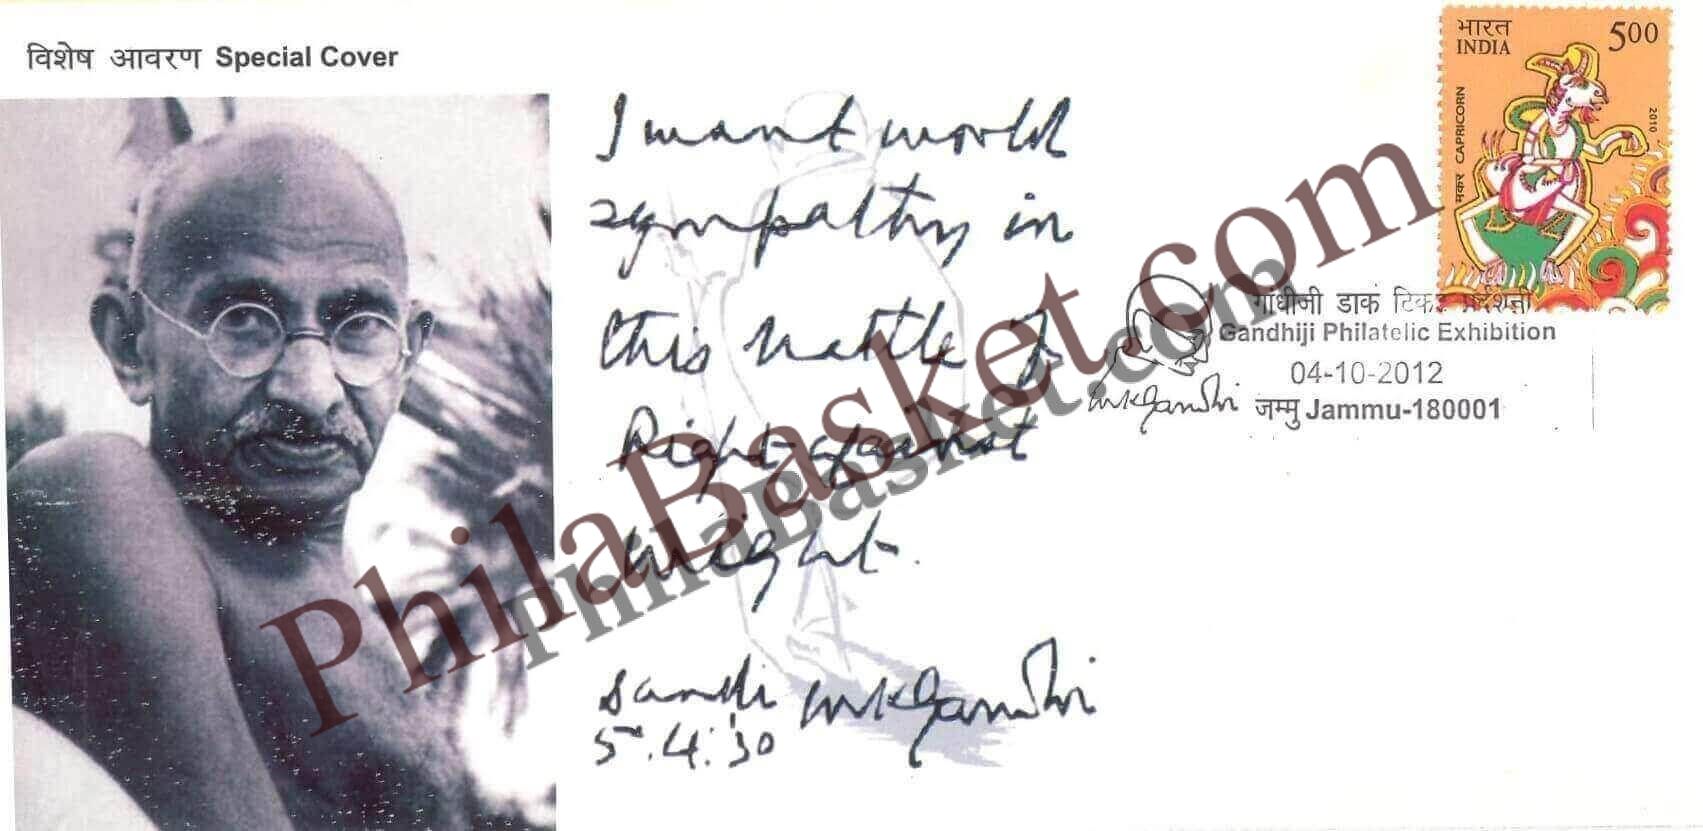 विशेष आवरण Special Cover
I want world
sympathy in
this battle of
Right against
might.
Dandi MKGandhi
5.4.'30
भारत
INDIA
500
मकर CAPRICORN
2010
गांधीजी डाक टिकट प्रदर्शनी
Gandhiji Philatelic Exhibition
04-10-2012
MKGandhi जम्मु Jammu-180001
PhilaBasket.com
PhilaBasket.com